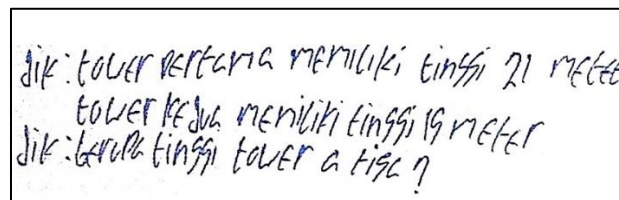 dik: tower pertama memiliki tinggi 21 meter
tower kedua memiliki tinggi 19 meter
dik: berapa tinggi tower a tiga?